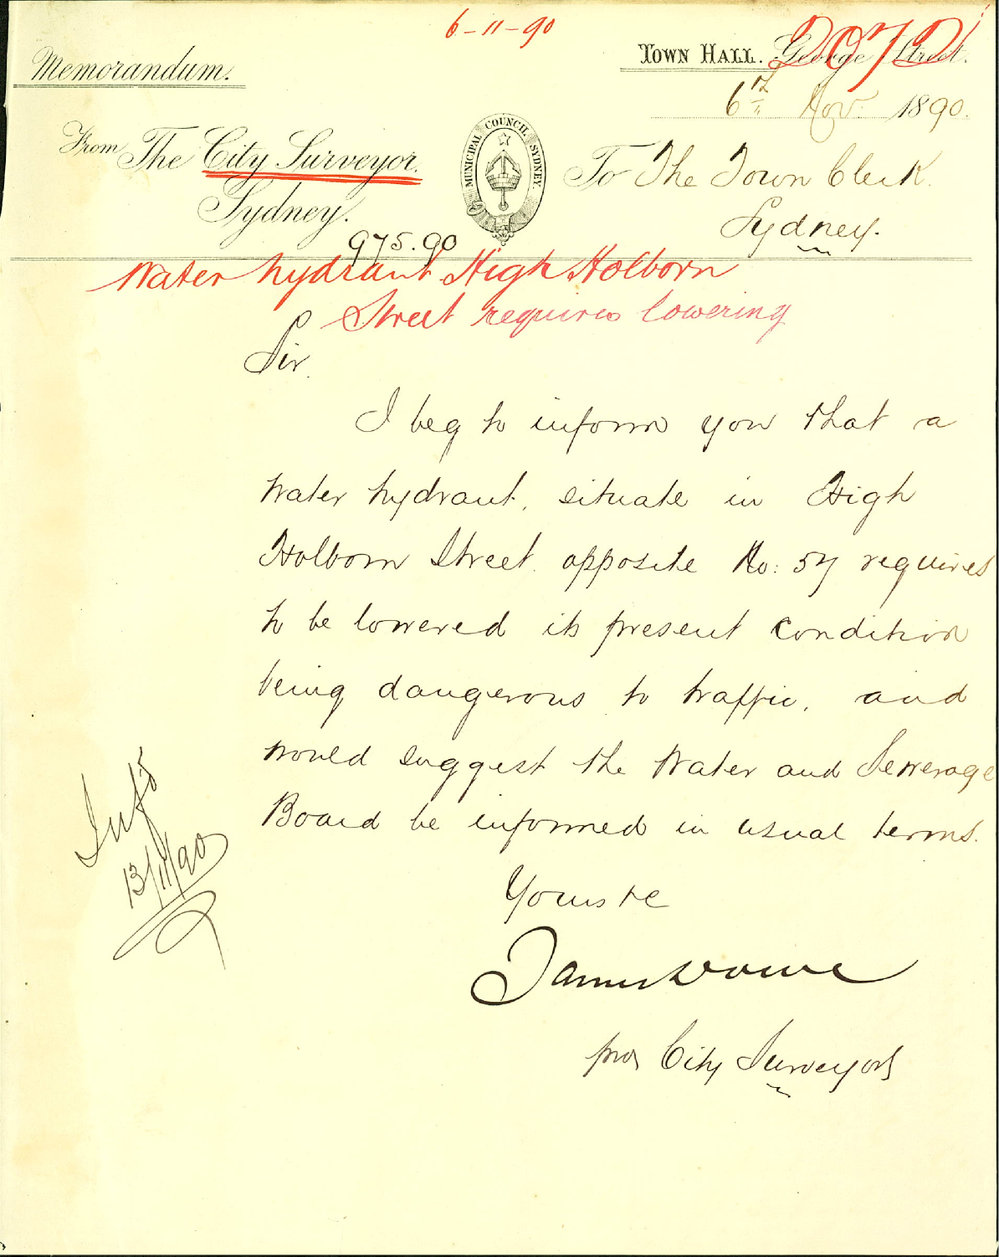 6-11-90
2072
Memorandum.
TOWN HALL. George Street.
6th Nov. 1890.
From The City Surveyor.
Sydney.
MUNICIPAL COUNCIL SYDNEY.
To The Town Clerk.
Sydney.
975.90
Water hydrant High Holborn
Street requires lowering
Sir.
I beg to inform you that a
water hydrant, situate in High
Holborn Street opposite No: 57 requires
to be lowered its present condition
being dangerous to traffic, and
would suggest the Water and Sewerage
Board be informed in usual terms.
Yours &c
James
pro City Surveyor
13/11/90